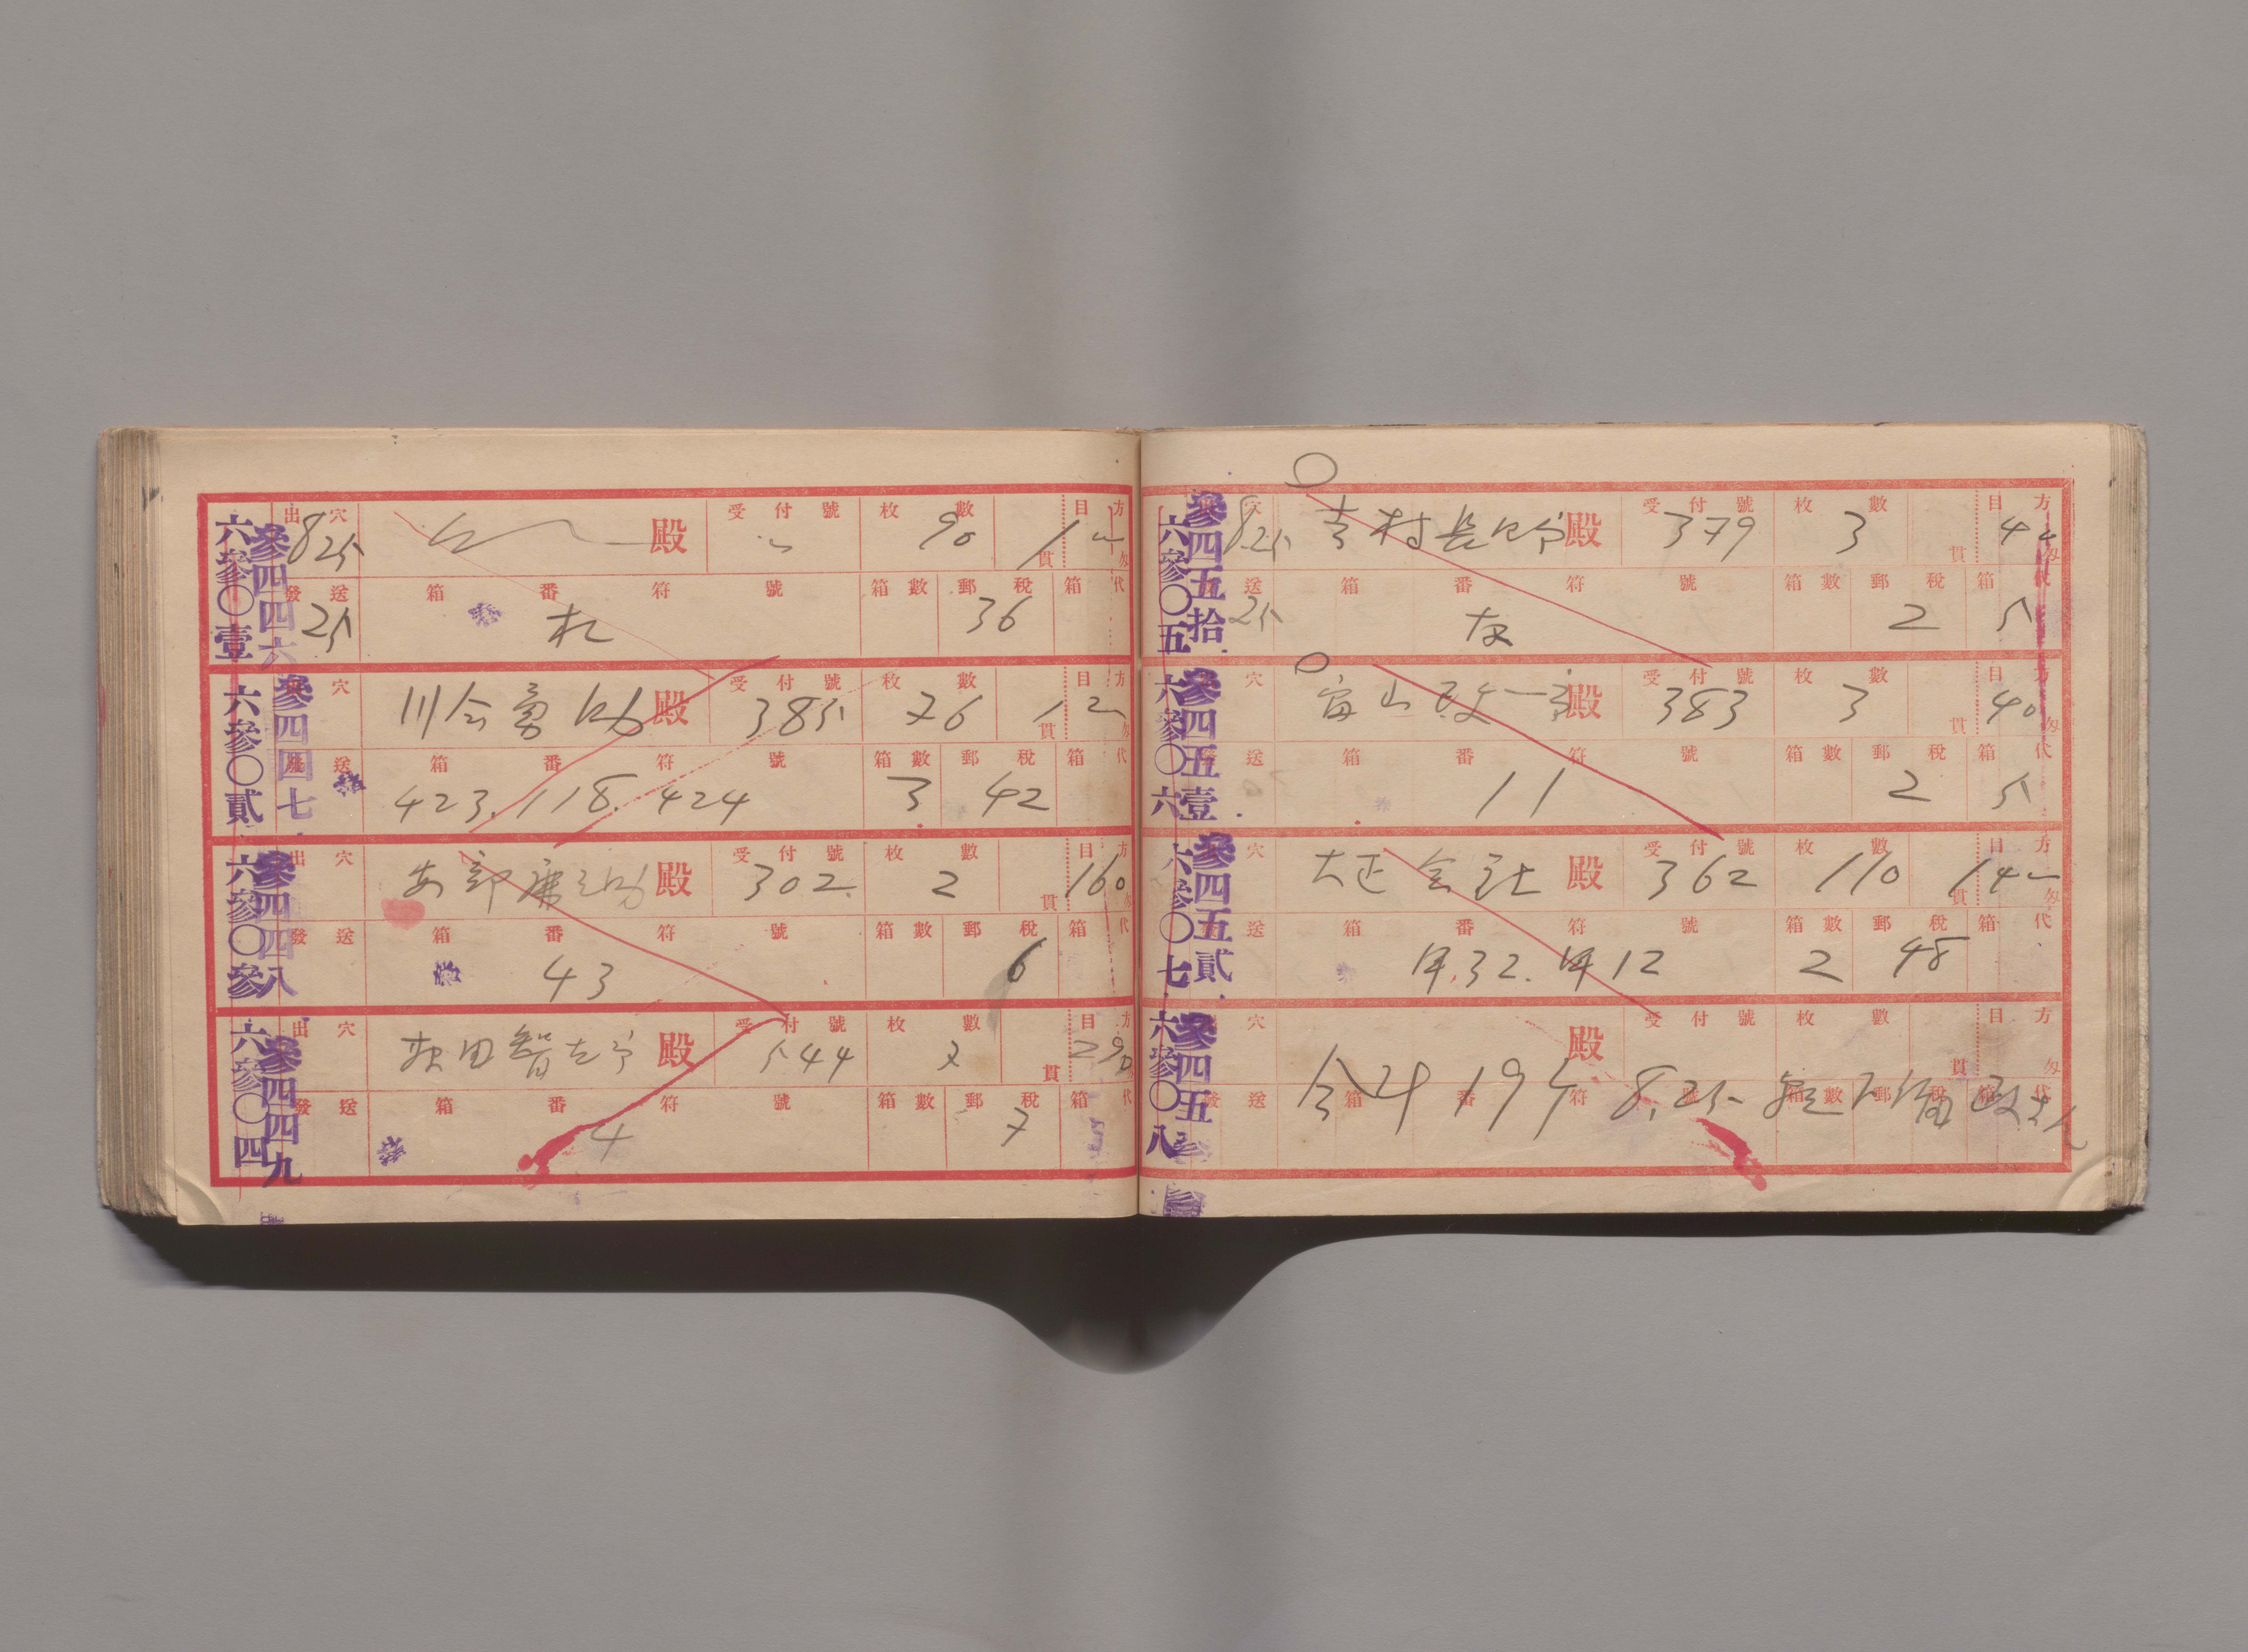 六参〇壹
参四四六
出穴 825 殿 受付號 枚數 90 貫 目方 匁
發送 25 箱番符號 札 箱數 郵税 36 箱代
六参〇貳
参四四七
出穴 川合 助 殿 受付號 385 枚數 76 貫 目方 匁
發送 箱番符號 423. 118. 424 箱數 3 郵税 42 箱代
六参〇参
参四四八
出穴 安部 助 殿 受付號 302. 枚數 2 貫 目方 160 匁
發送 箱番符號 43 箱數 郵税 6 箱代
六参〇四
参四四九
出穴 田智 殿 受付號 544 枚數 貫 目方 290 匁
發送 箱番符號 4 箱數 郵税 7 箱代
六参〇五
参四五拾
穴 825 吉村長 殿 受付號 379 枚數 3 貫 目方 匁
送 25 箱番符號 箱數 郵税 2 箱代 5
六参〇六
参四五壹
穴 富山政一 殿 受付號 383 枚數 3 貫 目方 40 匁
送 箱番符號 11 箱數 郵税 2 箱代 5
六参〇七
参四五貳
穴 大正会社 殿 受付號 362 枚數 110 貫 目方 匁
送 箱番符號 32. 12 箱數 2 郵税 48 箱代
六参〇八
参四五参
穴 殿 受付號 枚數 貫 目方 匁
發送 箱番符號 箱數 郵税 箱代
194 8.25